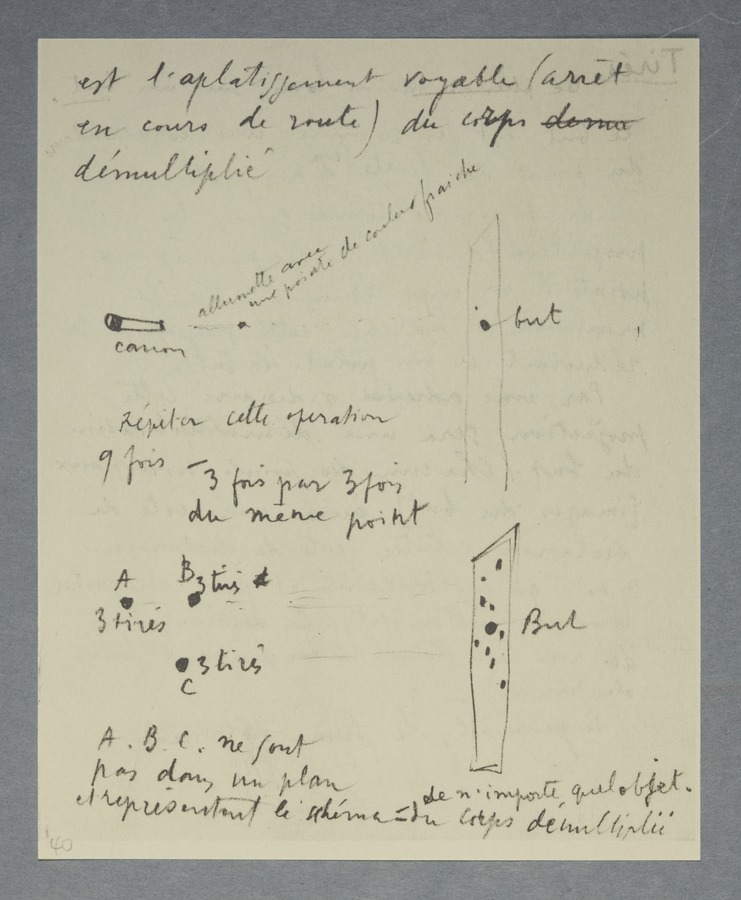 est l'aplatissement voyable (arrêt
en cours de route) du corps
démultiplié
allumette avec
une pointe de couleur fraîche
canon
but
Répéter cette operation
9 fois — 3 fois par 3 fois
du même point
A
B
3 tirés
3 tirés
3 tirés
C
But
A. B. C. ne sont
pas dans un plan
et représentent le schéma —
de n'importe quel objet.
du corps démultiplié
'40